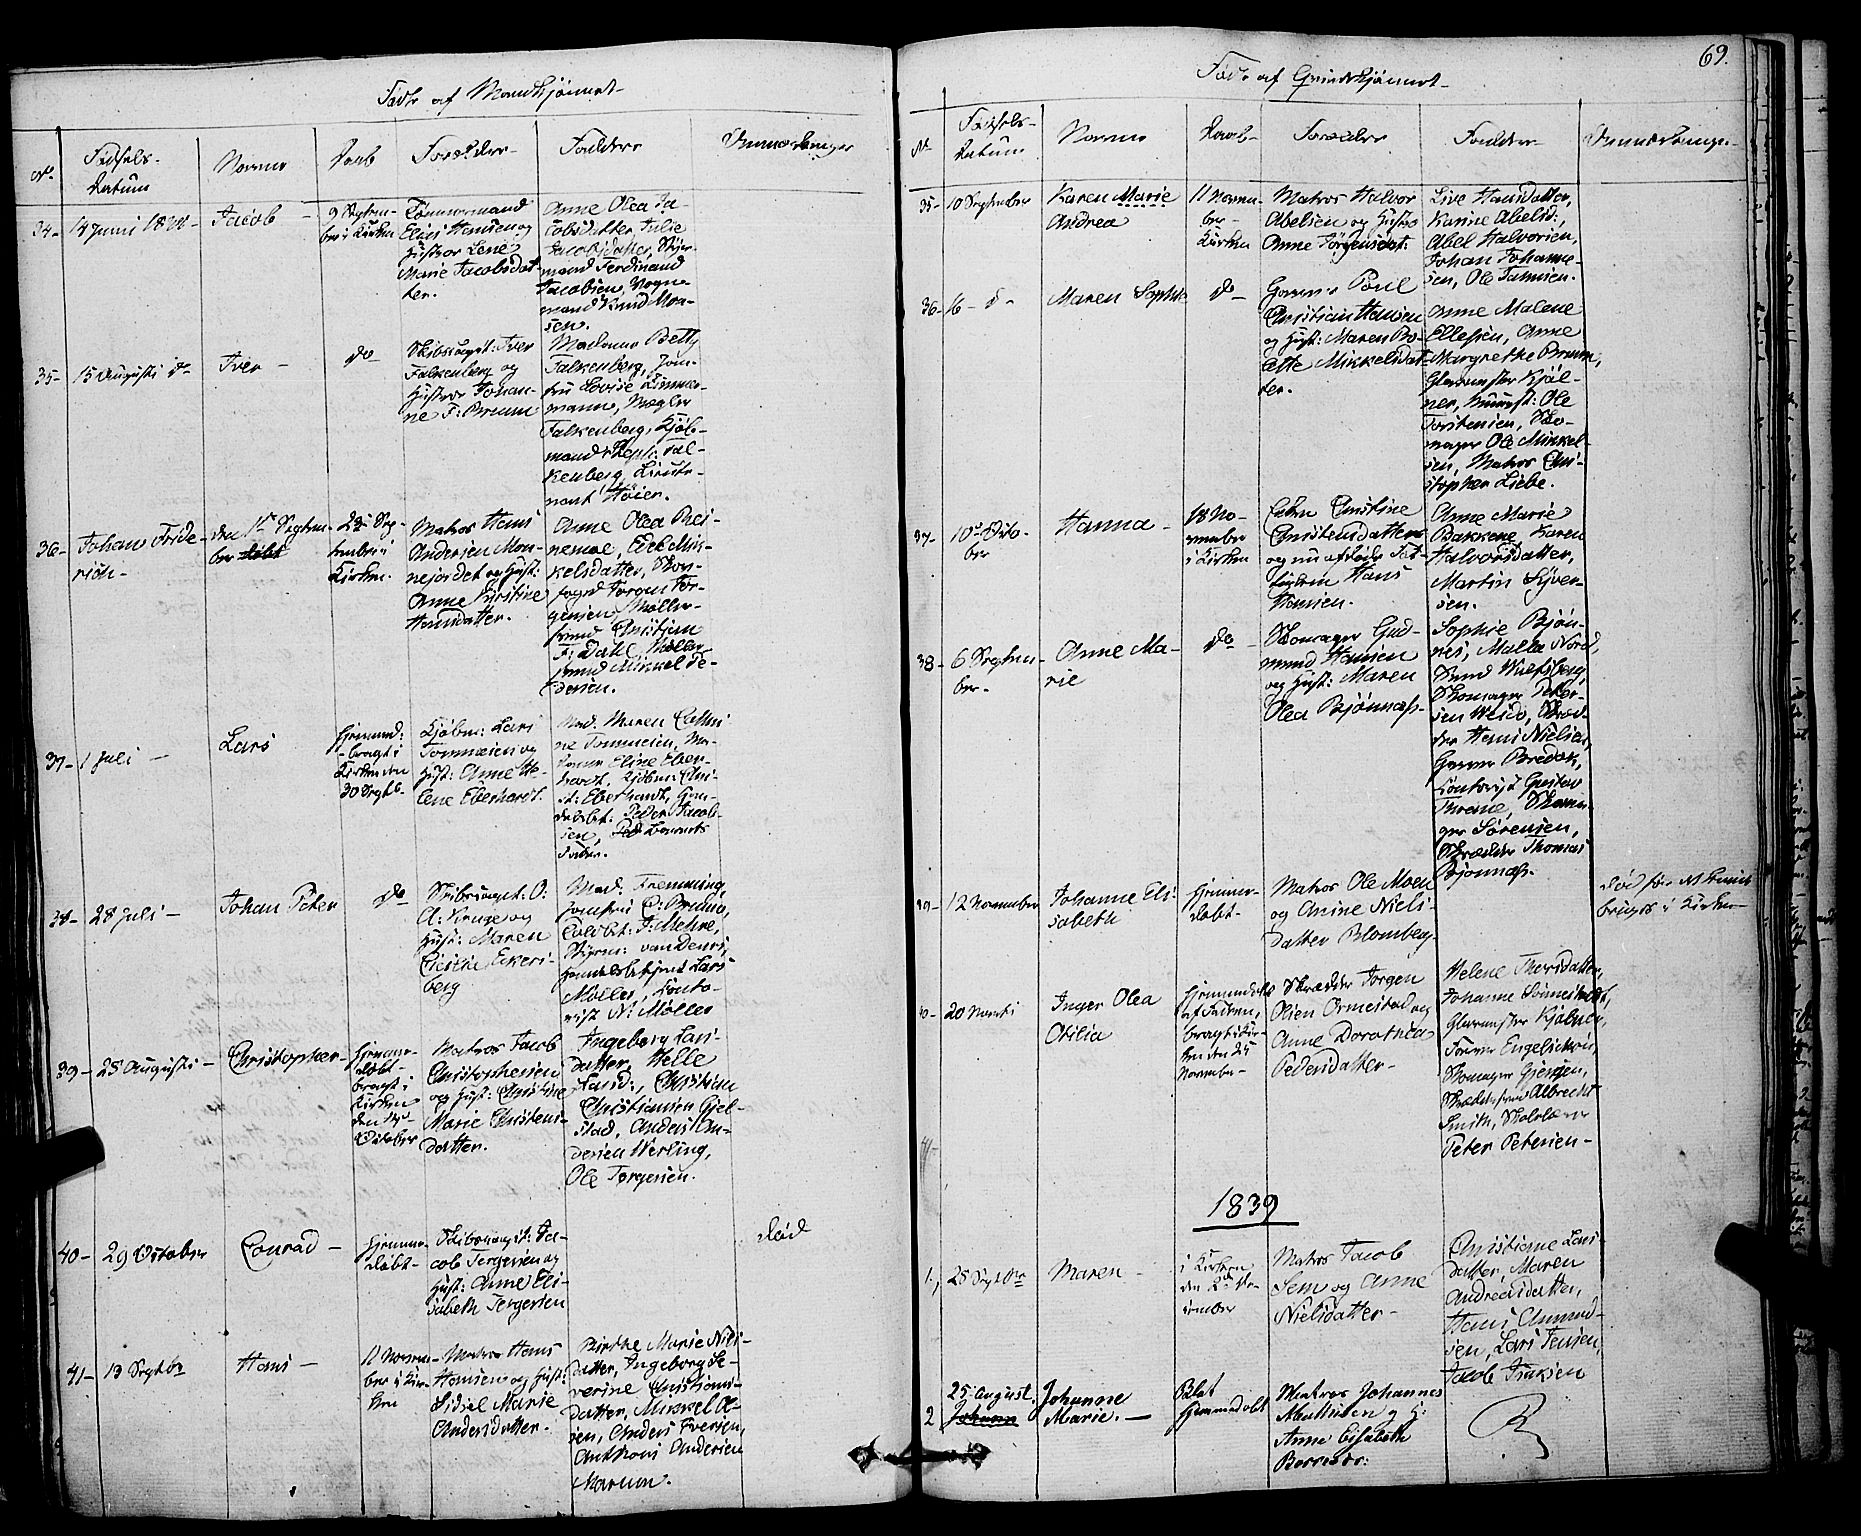 69.
Født af Mandkjønnet
No.
Fødsels-
Datum
Navne
Daab
Forældre
Faddere
Anmærkninger
34-
14 Juni 1838-
Jacob
9 Septem-
ber i Kirken
Tømmermand
Elias Hansen og
Hustroe Lene
Marie Jacobsdat-
ter.
Anne Olea Ja-
cobsdatter, Julie
Jacobsdatter, Styr-
mand Ferdinand
Jacobsen, Vogn-
mand Knud Mon-
sen.
35-
15 Augusti do
Iver -
do
Skibscapt: Iver
Falkenberg og
Hustroe Johan-
ne F: Bruun
Madame Betty
Falkenberg, Jom-
fru Lovise Zimmer-
mann, Mægler
Falkenberg, Kjøb-
mand Fal-
kenberg, Lieute-
nant Høier.
36-
Johan Fride-
rich-
den 1ste Septem-
ber
23de Sep-
tember i
Kirken.
Matros Hans
Andersen Mon-
nejordet og Hust:
Anne Kirstine
Hansdatter.
Anne Olea Rei-
nemoe, Edel Min-
kelsdatter, Skov-
foged Jørgen Jør-
gensen, Møller-
svend Christian
F: Dahl, Møller-
svend Minkel Pe-
dersen.
37-
1 Juli -
Lars
Hjemmed:
bragt i
Kirken den
30 Septb.
Kjøbm: Lars
Tommesen og
Hust: Anne He-
lene Eberhardt.
Mad. Maren Cathri-
ne Tommesen, Ma-
dame Eline Eber-
hardt, Kjøbm: Chri-
st: Eberhardt, Han-
delsbet: Peder Jacob-
sen, Barnets
Fader.
38-
28 Juli -
Johan Peter
do
Skibscapt: O.
A: Kruge og
Hust: Maren
Eckers-
berg
Mad: Fremming,
Jomfru C: Bruun,
Toldbet: J: Mehre,
Styrm: van Deurs,
Handelsbetjent Lars
Møller, Conto-
rist N: Møller
39-
25 Augusti -
Christopher-
Hjemme-
døbt-
bragt i
Kirken
den 14de
October
Matros Jacob
Christophersen
og Hust: Christine
Marie Christens-
datter.
Ingeborg Lars-
datter, Helle
Larsd:, Christian
Christiansen Gjel-
stad, Anders An-
dersen Werling,
Ole Torgersen.
40-
29 October
Conrad -
Hjemme-
døbt-
Skibscapt: Ja-
cob Torgersen og
Hust: Anne Eli-
sabeth Torgersen
død
41-
13 Septbr
Hans -
11 Novem-
ber i Kir-
ken
Matros Hans
Hansen og Hust:
Sidsel Marie
Andersdatter.
Birthe Marie Niels-
datter, Ingeborg Se-
verine Christians-
datter, Minkel O-
sen, Anders Iversen,
Anthoni Andersen
Marum.
Født af Qvindekjønnet
No
Fødsels-
Datum
Navne
Daab-
Forældre
Faddere
Anmærkninger
35-
10 September
Karen Marie
Andrea
11 Novem-
ber-
Kirken
Matros Halvor
Abelsen og Hustro
Anne Jørgensdat:
Live Hansdatter,
Karine Abelsd:,
Abel Halvorsen,
Johan Johanne-
sen, Ole Jamsen.
36-
16 - d -
Maren Sophie
do -
Garver Poul
Christian Hansen
og Hust: Maren Bo-
lette Minkelsdat-
ter.
Anne Malene
Ellefsen, Anne
Margrethe Bruun,
Glarmester Kjøl-
ner, Muurm: Ole
Torstensen, Sko-
mager Ole Minkel-
sen, Matros Chri-
stopher Liebe.
37-
10de Octo-
ber
Hanna -
18 No-
vember
i Kirken
Enken Christine
Christensdatter
og nu afdøde Fat-
tiglem Hans
Hansen.
Anne Marie
Bakkene Karen
Halvorsdatter,
Martin Syver-
sen.
38-
6 Septem-
ber-
Anne Ma-
rie
do
Skomager Gud-
mund Hansen
og Hust: Maren
Olea Bjønnæss-
Sophie Bjøn-
nes, Malla Nord,
Svend Wulfsberg,
Skomager Peter-
sen Weidø, Skræd-
der Hans Nielsen,
Garver Bredok,
Contorist Gustav
Thrane, Skoma-
ger Sørensen,
Skrædder Thomas
Bjønnæss.
39-
12 November
Johanne Eli-
sabeth
Hjemme-
døbt-
Matros Ole Moen
og Anine Niels-
datter Blomberg-
død før det kunde
bringes i Kirken
40-
20 Novbr
Inger Olea
Otilia
Hjemmedøbt
af Faderen,
bragt i Kir-
ken den 25
November-
Skrædder Jørgen
Olsen Ormestad og
Anne Dorothea
Pedersdatter-
Helene Thorsdatter,
Johanne Sonnestvedt,
Glarmester Kjølner,
Farver Engelschiøn,
Skomager Gjersøen,
Skrædersvend Albrecht
Smith, Skolelærer
Peter Petersen-
41-
1839
1.
25 Septbr
Maren -
i Kirken
den 2den De-
cember
Matros Jacob
Sem og Anne
Nielsdatter-
Christiane Lars-
datter, Maren
Andreasdatter,
Hans Amund-
sen, Lars Jensen,
Jacob Isaksen
2
25 August.
Johanne
Marie. -
Blot
hjemmedøbt
Matros Johannes
Mathisen og H:
Anne Elisabeth